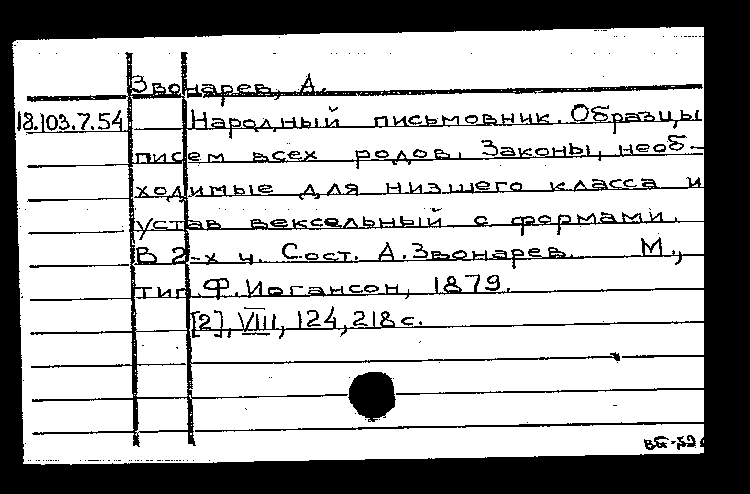 Звонарев, А.
18.103.7.54 Народный письмовник. Образцы
писем всех родов. Законы, необ-
ходимые для низшего класса и
устав вексельный с формами.
В 2-х ч. Сост. А. Звонарев. М.,
тип. Ф. Иогансон, 1879.
[2], VIII, 124, 218 с.